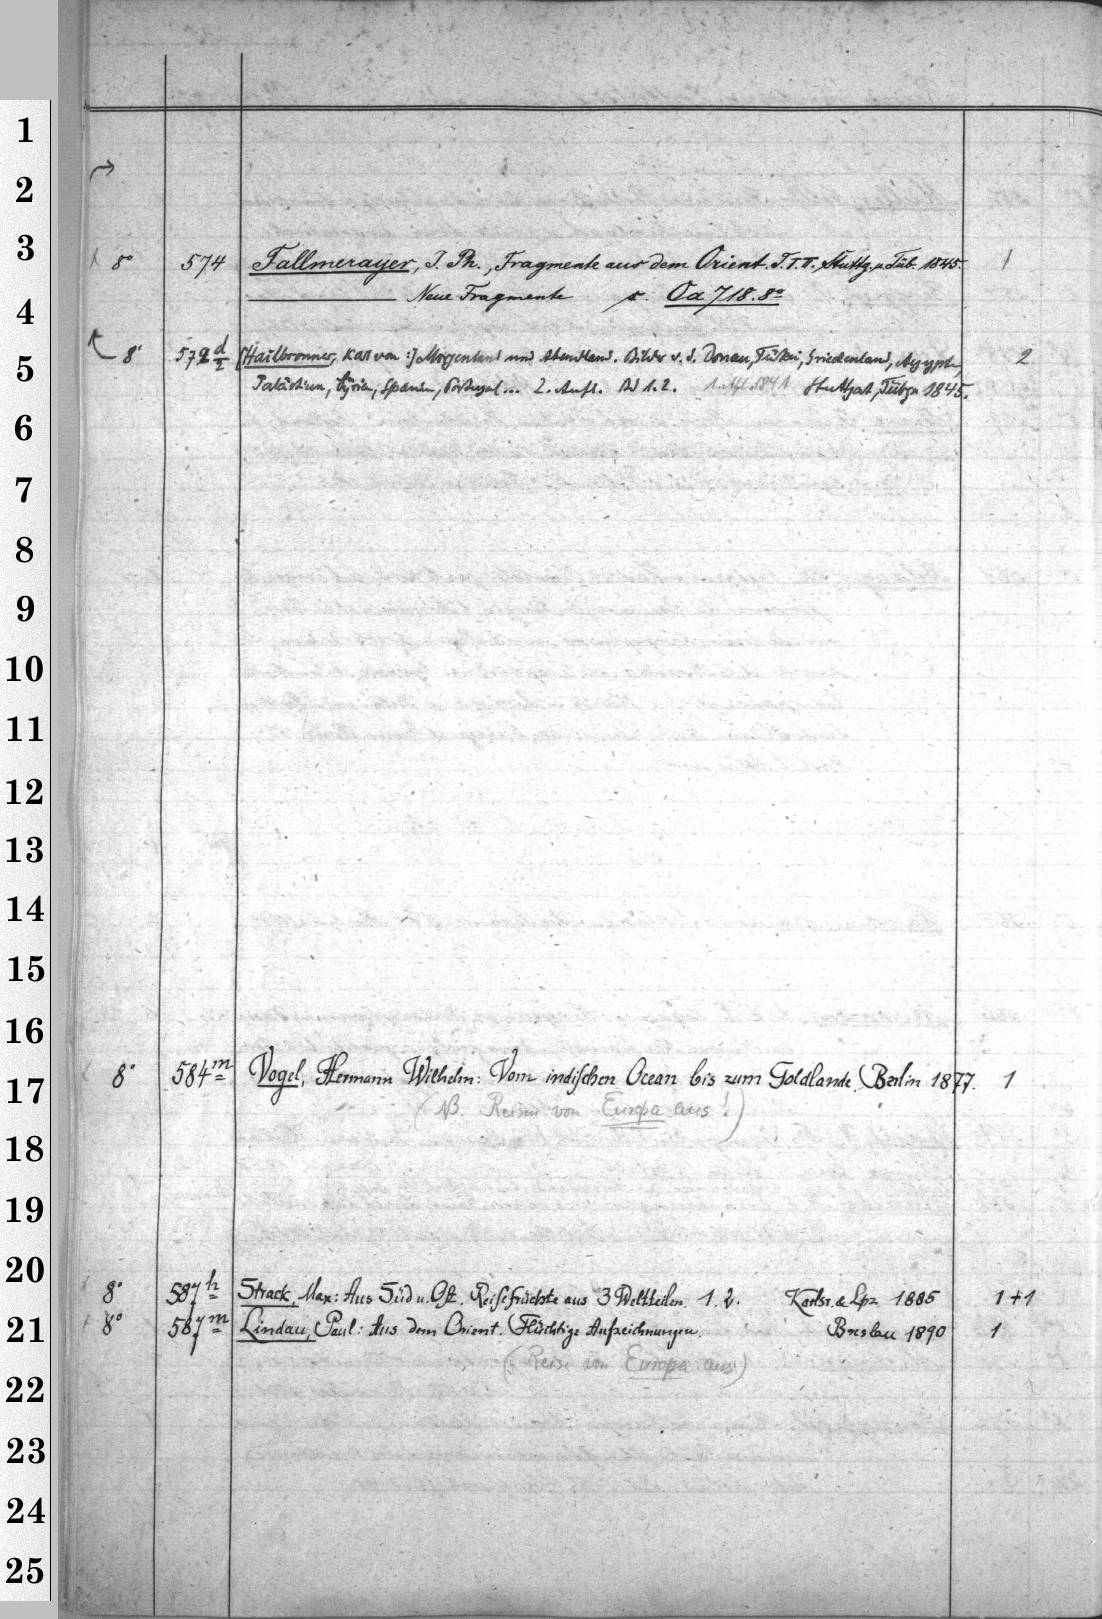 1
2
3
8° 574 Fallmerayer, J. Ph., Fragmente aus dem Orient. T. I. II. Stuttg. u. Tüb. 1845. 1
4
Neue Fragmente s. Oa 718. 8°
5
8° 572 d/2 [Hailbronner, Karl von:] Morgenland und Abendland. Bilder v. d. Donau, Türkei, Griechenland, Aegypten, 2
Palästina, Syrien, Spanien, Portugal ... 2. Aufl. Bd 1. 2. 1. Aufl. 1841 Stuttgart, Tübgn 1845.
6
7
8
9
10
11
12
13
14
15
16
17
8° 584 m Vogel, Hermann Wilhelm: Vom indischen Ocean bis zum Goldlande. Berlin 1877. 1
(NB. Reisen von Europa aus!)
18
19
20
8° 587 h Strack, Max: Aus Süd u. Ost. Reisefrüchte aus 3 Weltteilen. 1. 2. Karlsr. & Lpz 1885 1+1
21
8° 587 m Lindau, Paul: Aus dem Orient. Flüchtige Aufzeichnungen. Breslau 1890 1
(Reise von Europa aus)
22
23
24
25